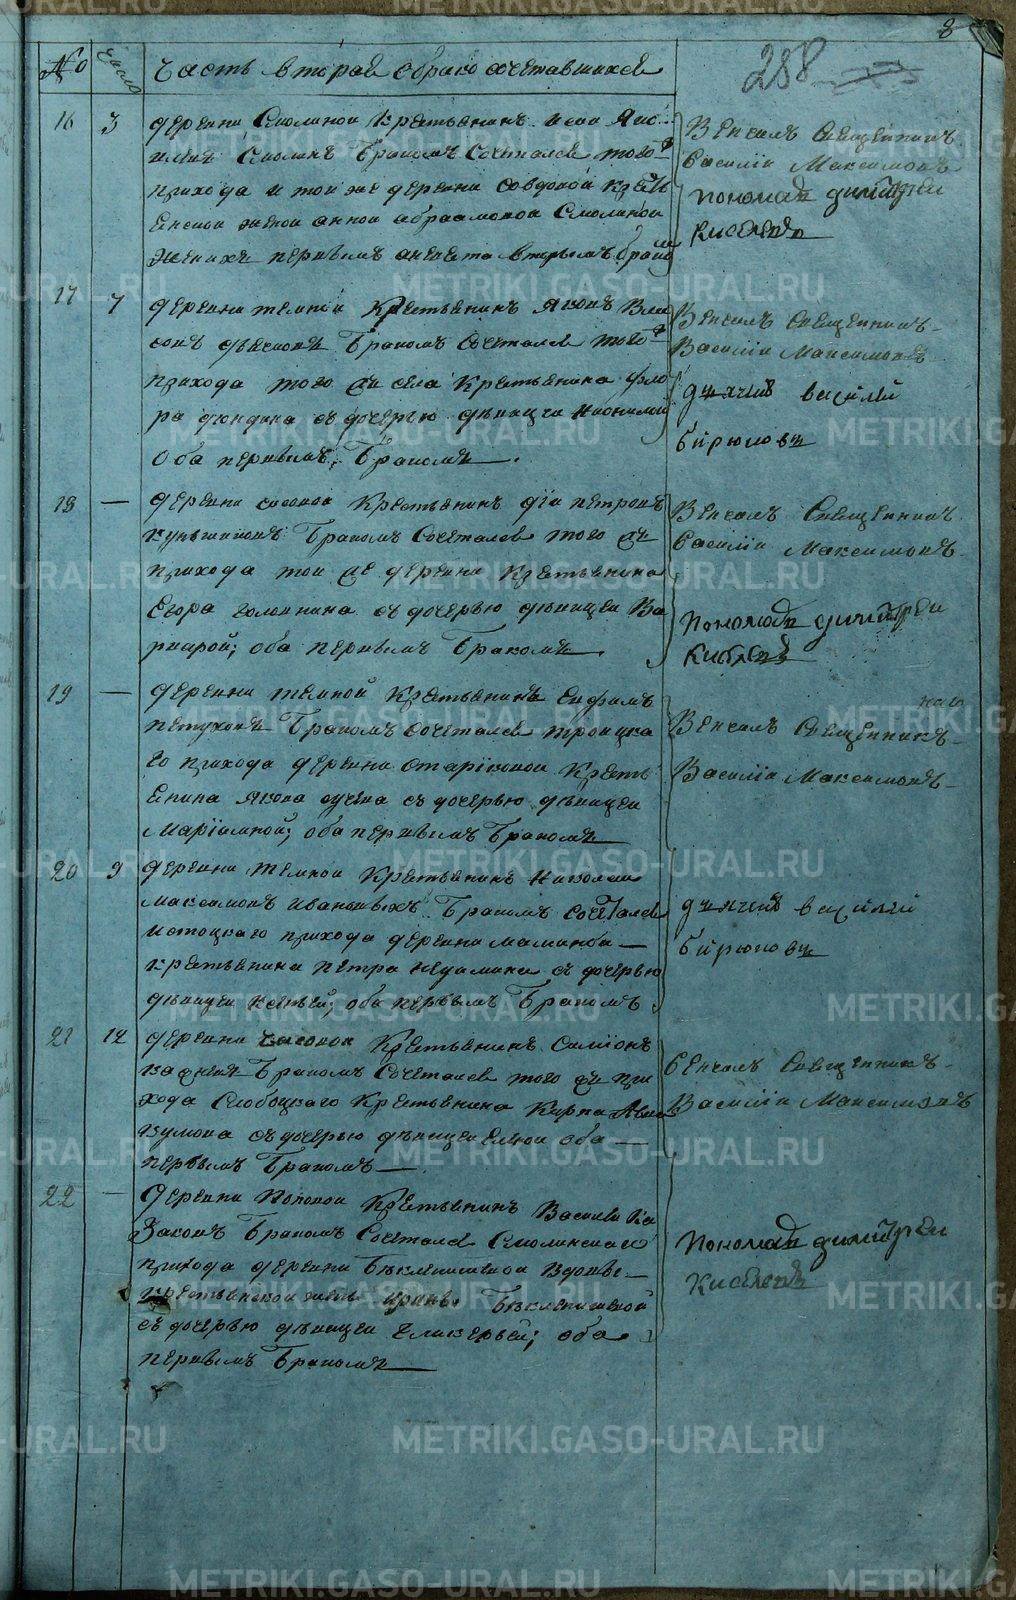 8
288
№ Число Часть вторая о бракосочетавшихся
16 3 деревни Смолиной Крестьянинъ Исаи Яко
влевъ Смолинъ Бракомъ Сочетался того ж
прихода и той же деревни со вдовой Кресть
енской женой Анной Абраамовой Смолиной
Женихъ первымъ а невеста вторымъ бракомъ
Венчалъ Священникъ
Василiй Максимовъ
пономарь димитрей
Киселевъ
17 7 деревни темной Крестьянинъ Яковъ Вла
совъ Бракомъ Сочетался того ж
прихода того же села Крестьянина Фло
ра дюндина съ дочерью девицеи
Оба первымъ Бракомъ
Венчалъ Священникъ
Василiи Максимовъ
дьячекъ василей
бирюковъ
18 — деревни Крестьянинъ Петровъ
Бракомъ Сочетался того же
прихода той же деревни Крестьянина
Егора Головнина съ дочерью девицеи Ва
рварой; оба первымъ Бракомъ
Венчалъ Священникъ
Василiи Максимовъ
Пономарь димитреи
Киселевъ
19 — деревни темной Крестьянинъ Ефимъ
Петуховъ Бракомъ Сочетался троицка
го прихода деревни Стариковой Кресть
енина Якова съ дочерью девицеи
Марiамной; оба первымъ Бракомъ
Венчалъ Священникъ
Василiи Максимовъ
20 9 деревни темной Крестьянинъ Николаи
Максимовъ Ивановыхъ Бракомъ Сочетался
Истоцкаго прихода деревни
крестьянина Петра съ дочерью
девицеи оба первымъ Бракомъ
дьячекъ василей
бирюковъ
21 12 деревни Крестьянинъ Симiонъ
Бракомъ Сочетался того же при
хода Слобоцкаго Крестьянина Карпа Авва
кумова съ дочерью девицеи оба
первымъ Бракомъ
Венчалъ Священникъ
Василiи Максимовъ
22 — деревни Поповой Крестьянинъ Василеи Ка
заковъ Бракомъ Сочетался Смолинскаго
прихода деревни Беклемишевой вдовы
крестьянской жены Беклемишевой
съ дочерью девицеи Гликерьей; оба
первымъ Бракомъ
Пономарь димитреи
Киселевъ
METRIKI.GASO-URAL.RU